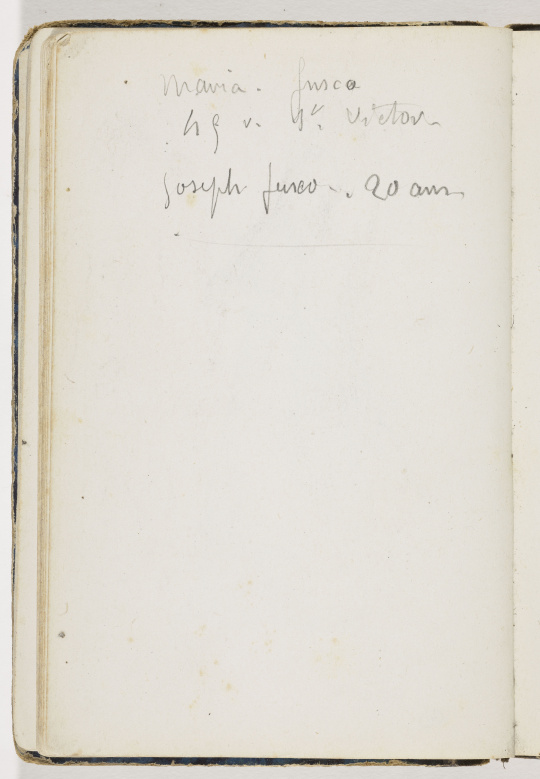 Maria. Fusco
49 r. St. Victor
Joseph Fusco. 20 ans